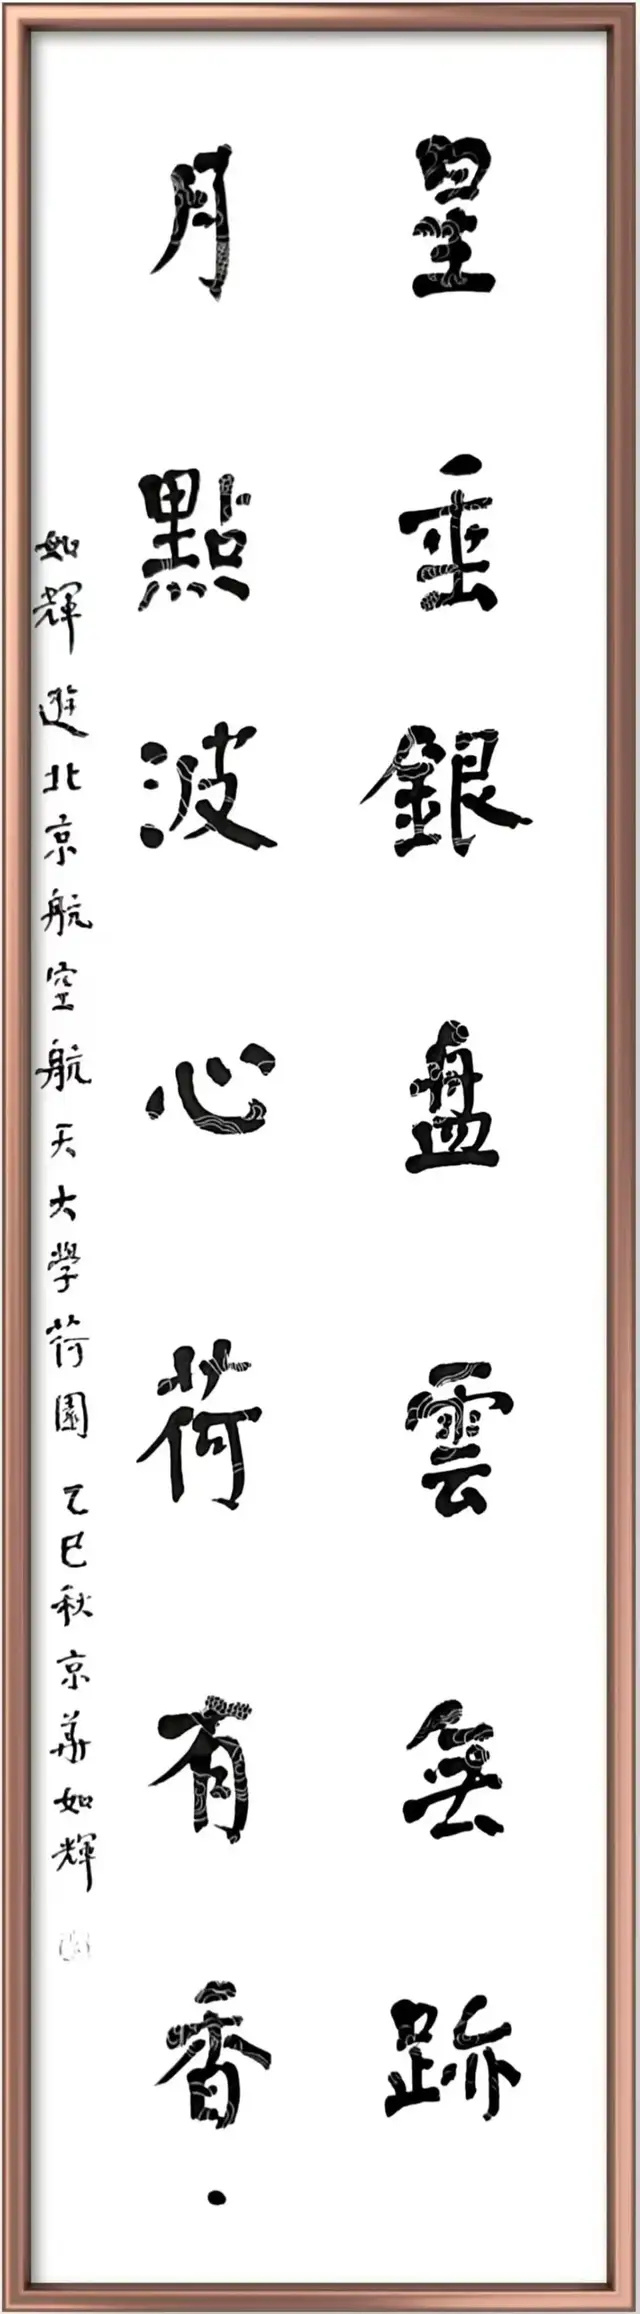 星垂銀盤雲無跡
月點波心荷有香.
如輝遊北京航空航天大學荷園 乙巳秋京華如輝